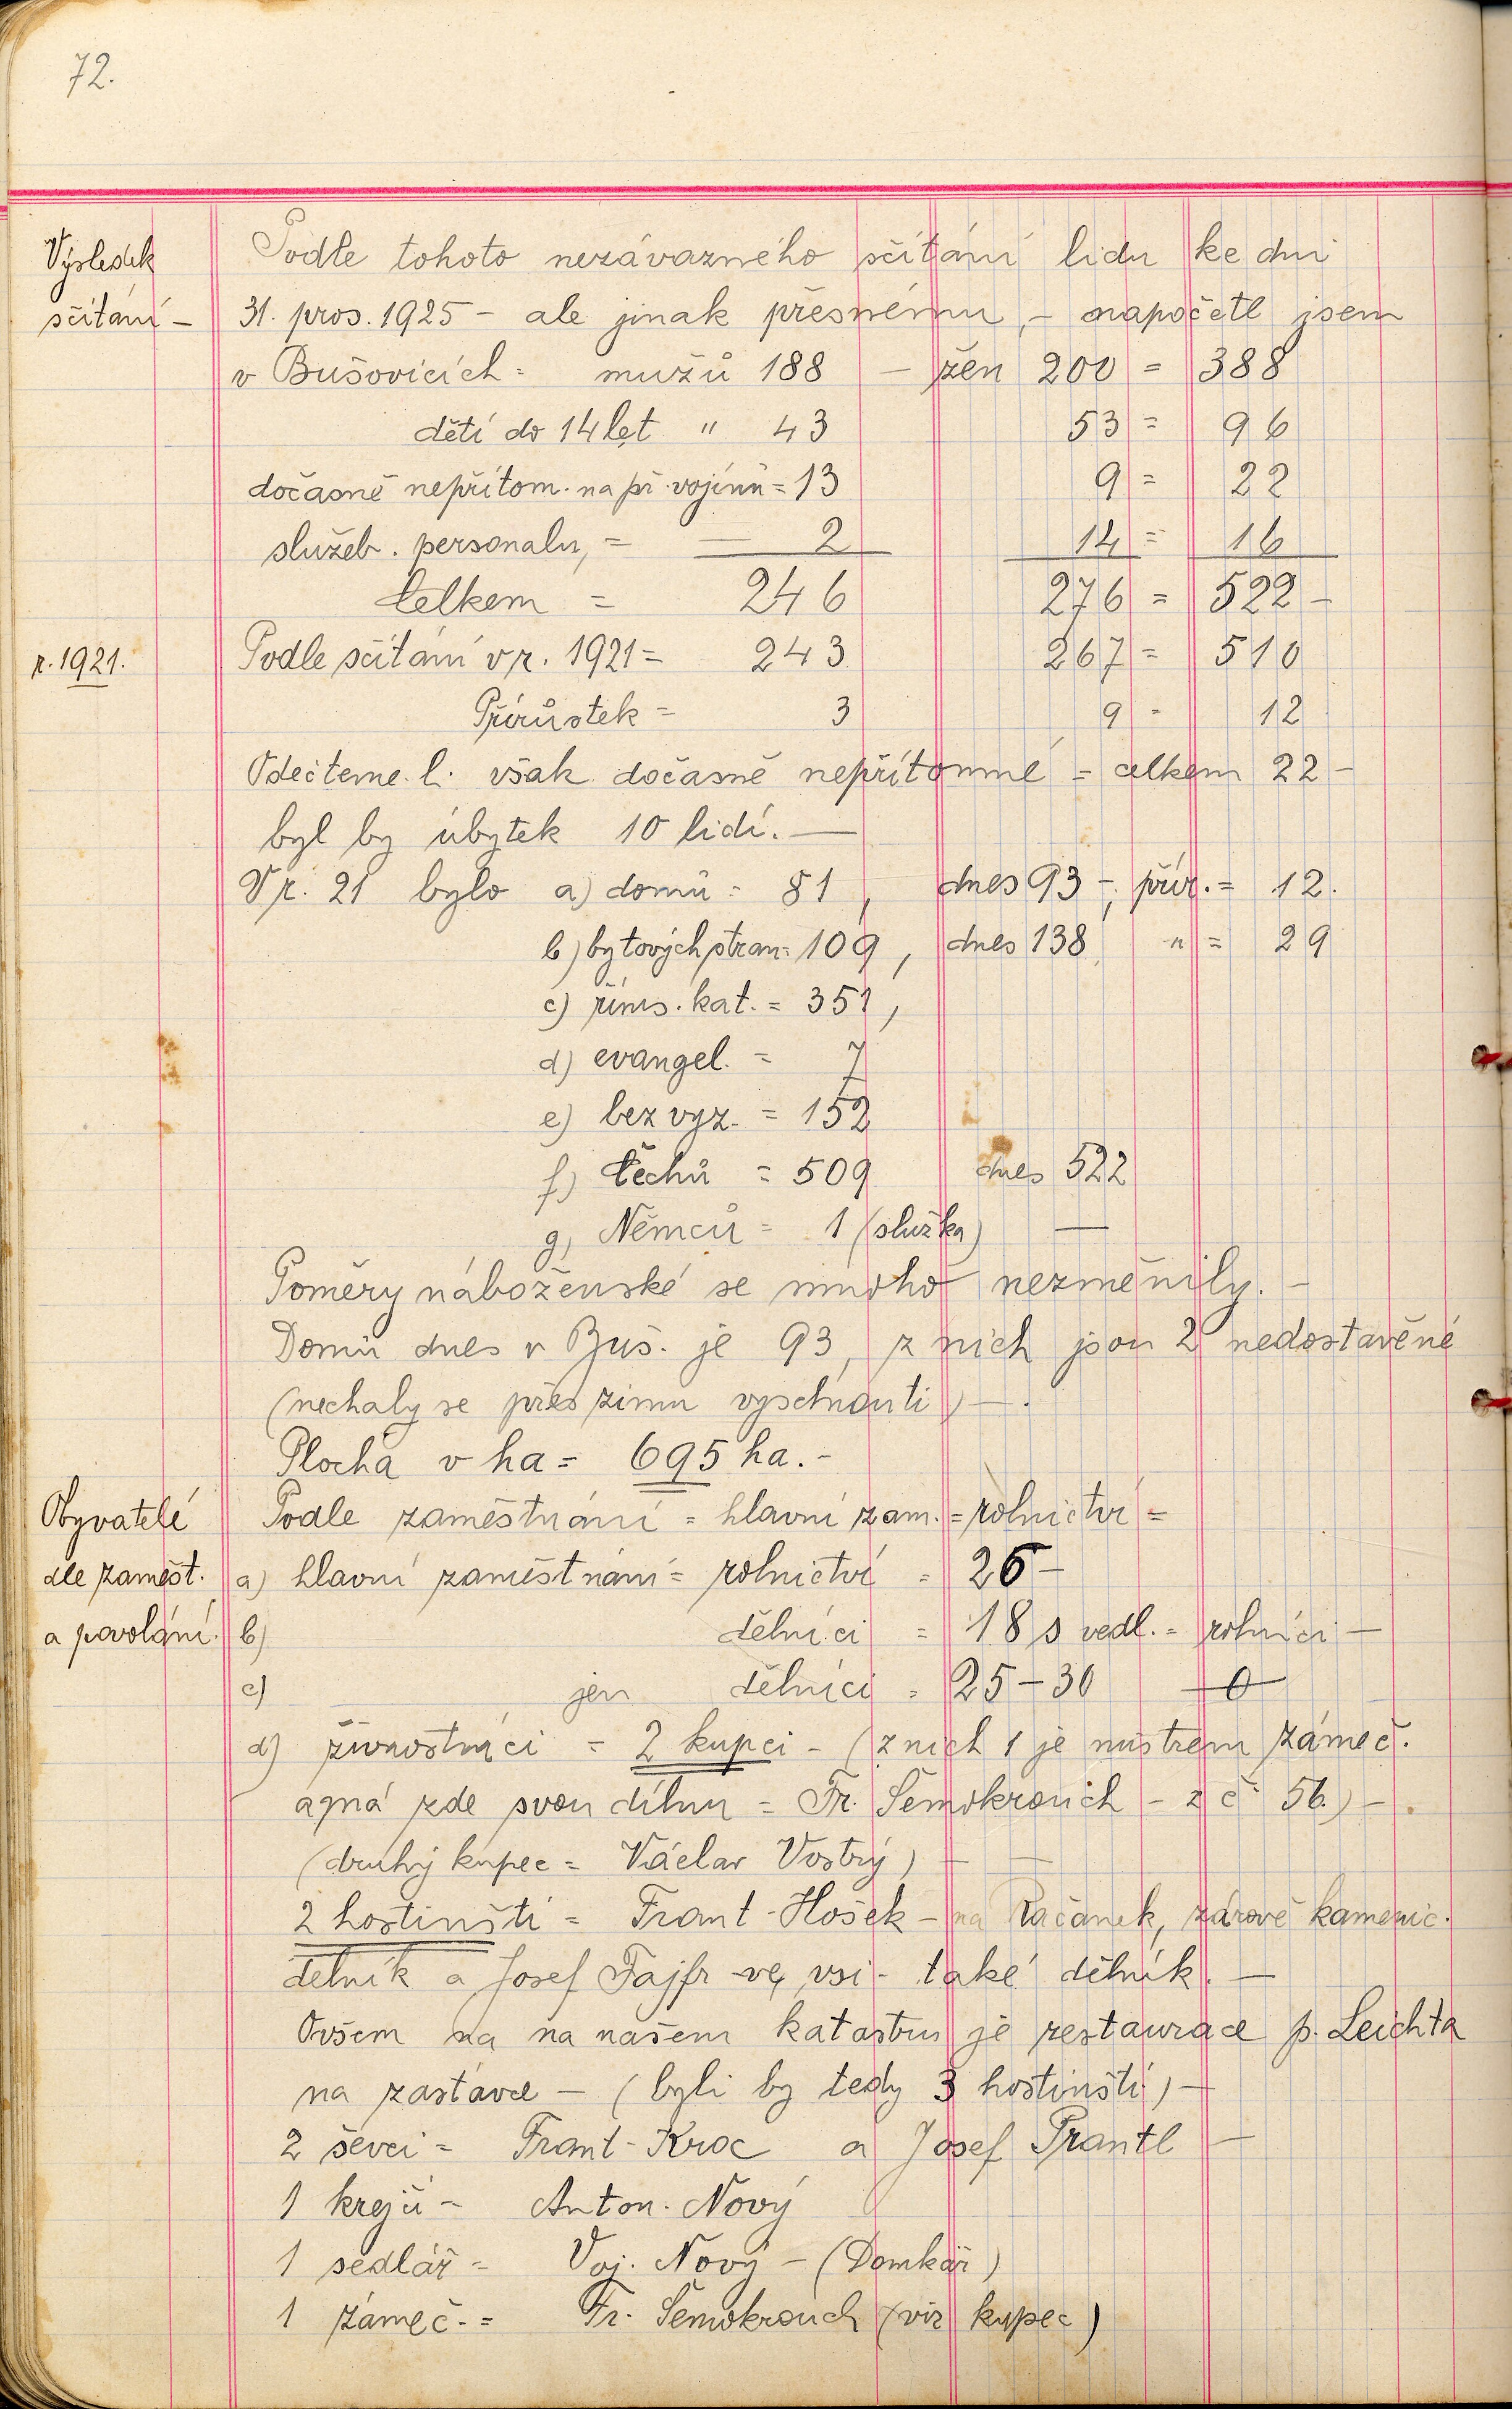 72.
Výsledek
sčítání –
Podle tohoto nezávazného sčítání lidu ke dni
31. pros. 1925 – ale jinak přesnému, – napočetl jsem
v Bušovicích = mužů 188 – žen 200 = 388
dětí do 14 let " 43 53 = 96
dočasně nepřítom. na př. vojínů = 13 9 = 22
služeb. personalu, = — 2 14 = 16
Celkem = 246 276 = 522 –
r. 1921.
Podle sčítání v r. 1921 = 243 267 = 510
Přírůstek = 3 9 - 12
Odečteme-li však dočasně nepřítomné = celkem 22 –
byl by úbytek 10 lidí. —
V r. 21 bylo a) domů = 81, dnes 93 –, přír. = 12.
b) bytových stran = 109, dnes 138, " = 29
c) říms. kat. = 351,
d) evangel. = 7
e) bez vyz. = 152
f) Čechů = 509 dnes 522
g) Němců = 1 (služka) —
Poměry náboženské se mnoho nezměnily. –
Domů dnes v Buš. je 93, z nich jsou 2 nedostavěné
(nechaly se přes zimu vyschnouti) — .
Plocha v ha = 695 ha. –
Obyvatelé
dle zaměst.
a povolání.
Podle zaměstnání = hlavní zam. = rolnictví =
a) hlavní zaměstnání = rolnictví = 26 –
b) dělníci = 18 s vedl. = rolníci —
c) jen dělníci = 25 – 30 0
d) živnostníci = 2 kupci – (z nich 1 je mistrem zámeč.
a má zde svou dílnu = Fr. Šemokrouch – z č. 56.) –
(druhý kupec = Václav Vostrý) – —
2 hostinští = Frant. Hošek – na Račánek, zárově kamenic.
dělník a Josef Fajfr ve vsi – také dělník. —
Ovšem na na našem katastru je restaurace p. Leichta
na zastávce – (byli by tedy 3 hostinští) –
2 ševci = Frant. Kroc a Josef Prantl —
1 krejčí – Anton. Nový
1 sedlář = Voj. Nový – (Domkář)
1 zámeč. = Fr. Šemokrouch (viz kupec)